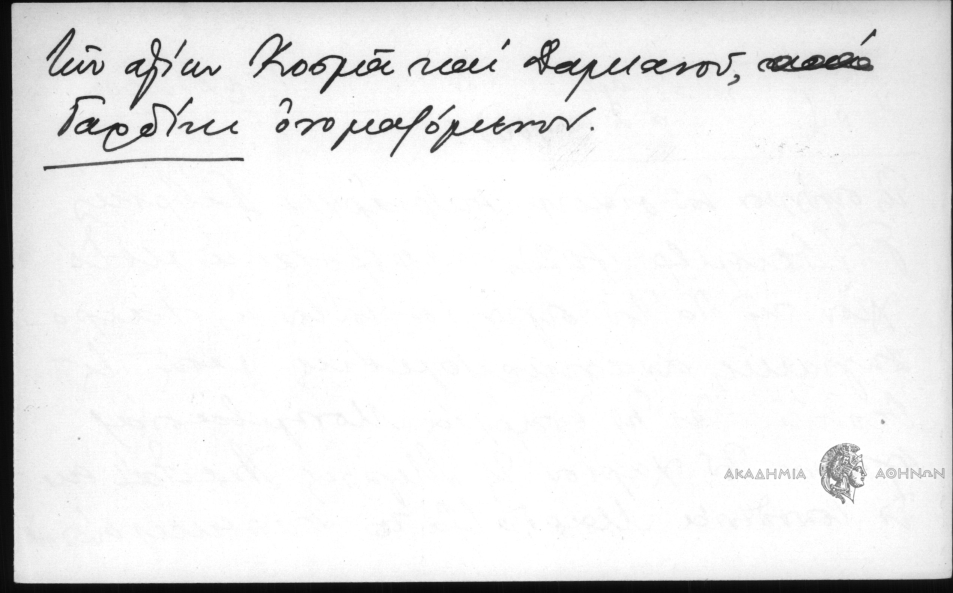 τῶν ἁγίων Κοσμᾶ καί Δαμιανοῦ,
Γαρδίκι ὀνομαζόμενον.
ΑΚΑΔΗΜΙΑ ΑΘΗΝΩΝ